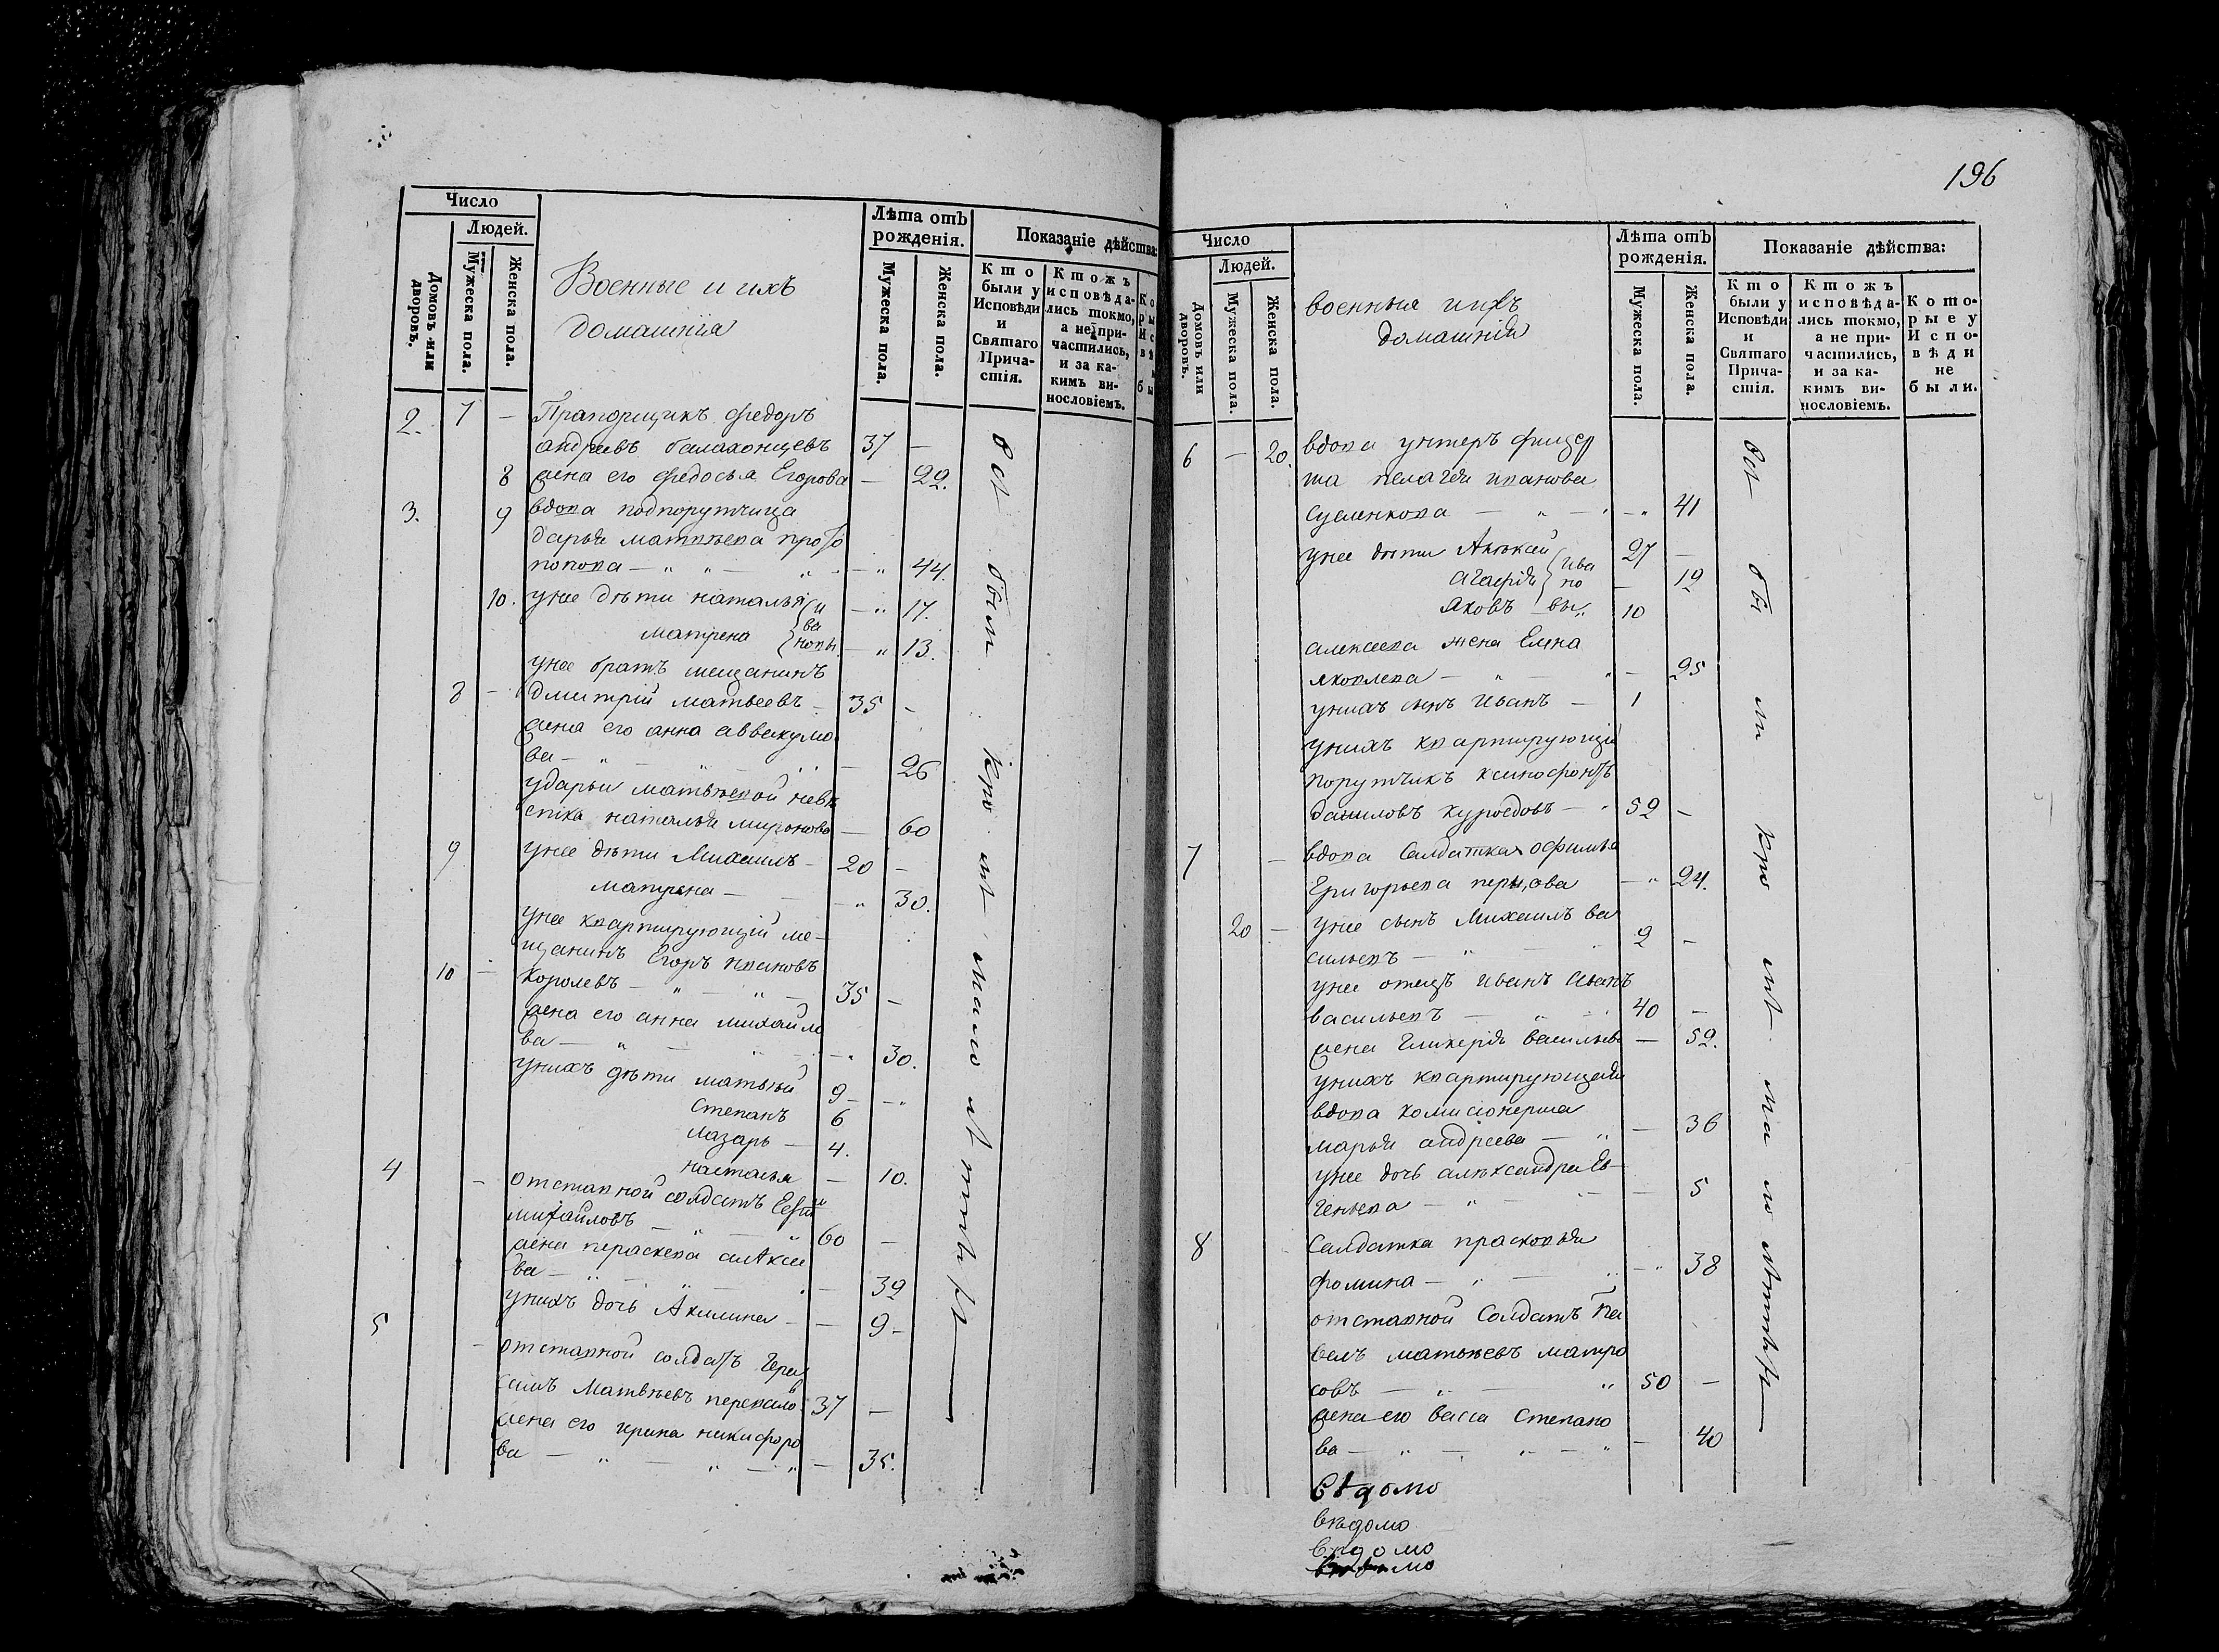 Число
Людей.
Домовъ или дворовъ.
Мужеска пола.
Женска пола.
Военные и ихъ
домашнiя
Лѣта отъ рожденiя.
Мужеска пола.
Женска пола.
Показанiе дѣйства:
Кто были у Исповѣди и Святаго Причастiя.
Ктожъ исповѣдались токмо, а не причастились, и за какимъ винословiемъ.
2. 7 — Прапорщикъ Федоръ
андреевъ балахонцевъ 37 —
8 жена его федосья Егорова — 22.
3. 9 вдова подпорутчица
дарья матвѣева прото
попова — „ „ — „ — „ 44.
10. унее дѣти наталья — „ 17.
матрена — „ 13.
ивановы
унее братъ мещанинъ
8 — дмитрiй матвеевъ — 35 —
жена его анна аввакумо
ва — „ — „ — 26
ударьи матвѣевой невѣ
стка наталья миронова — 60
9 унее дѣти Михаилъ — 20 —
матрена — — „ 30.
унее квартирующiй ме-
щанинъ Егоръ ивановъ
10 — Королевъ — „ — „ — 35 —
жена его анна михайло
ва — „ — „ — „ 30.
унихъ дѣти матвѣй 9 — „
степанъ 6
лазарь — 4.
наталья — 10.
4 — отставной солдатъ
михайловъ — „ — „ 60 —
жена параскева алексее
ва — „ — „ — 39
унихъ дочь Акилина — — 9 —
5 — отставной солдатъ Гера
симъ Матвѣевъ 37 —
жена его ирина никифоро
ва — „ — „ — „ — 35.
всѣ были кромѣ малолѣтныхъ
196
Число
Людей.
Домовъ или дворовъ.
Мужеска пола.
Женска пола.
военныя ихъ
домашнiя
Лѣта отъ рожденiя.
Мужеска пола.
Женска пола.
Показанiе дѣйства:
Кто были у Исповѣди и Святаго Причастiя.
Ктожъ исповѣдались токмо, а не причастились, и за какимъ винословiемъ.
Которые у Исповѣди не были.
6 — 20. вдова унтеръ фицер
ша пелагея иванова
— „ — „ 41
унее дѣти Алексей 27 —
агафiя — 19
яковъ 10
ивановы „
алексеева жена Елена
яковлева — „ — „ — 25
унихъ сынъ Иванъ — 1
унихъ квартирующiй
порутчикъ ксинофонтъ
даниловъ куроедовъ — „ 52 —
7 — вдова Салдатка офимья
Григорьева — „ 24.
20 — унее сынъ Михаилъ ва
сильевъ — „ — 2 —
унее отецъ иванъ Иванъ
васильевъ — „ 40 —
жена Гликерiя васильева — 52.
унихъ квартирующая
вдова комисiонерша
марья андреева — „ — 36
унее дочь александра Ев-
геньева — „ — „ — 5
8 Салдатка прасковья
фомина — „ — „ — „ 38
отставной Солдатъ Па
велъ матвѣевъ матро
совъ — „ — „ 50 —
жена его васса степано
ва — „ — „ — „ — 40
всѣ были кромѣ малолѣтныхъ
вѣдомо
вѣдомо
вѣдомо
вѣдомо